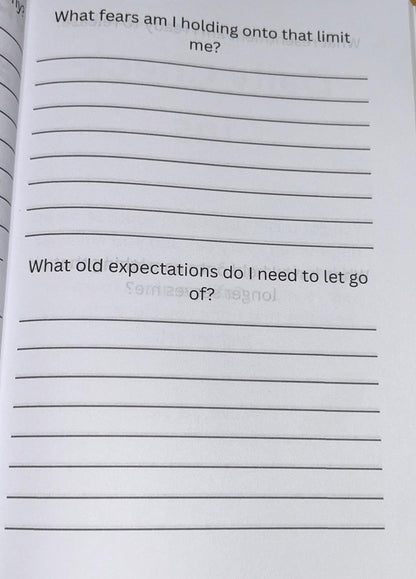 What fears am I holding onto that limit
me?
What old expectations do I need to let go
of?